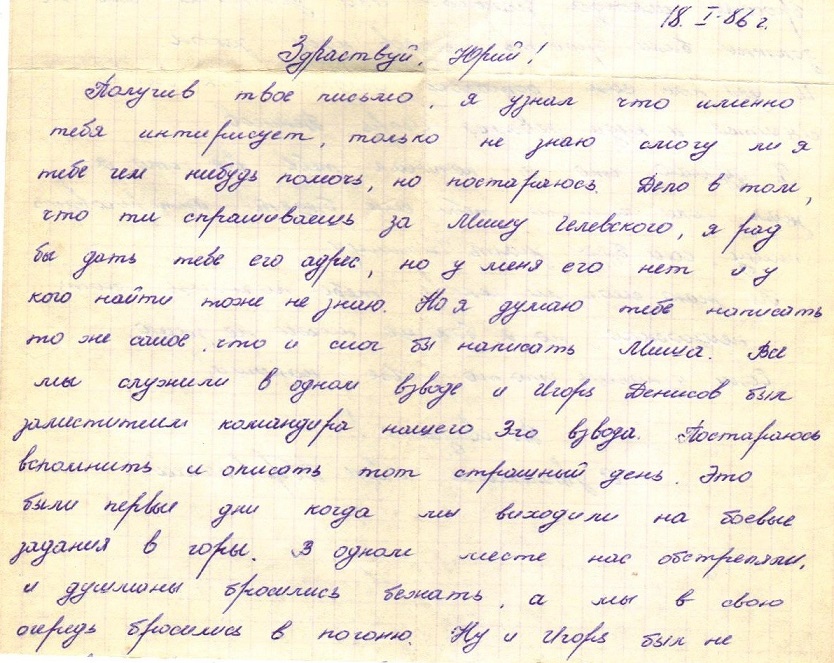 18. I-86 г.
Здраствуй, Юрий!
Получив твое письмо, я узнал что именно
тебя интирисует, только не знаю смогу ли я
тебе чем нибудь помочь, но постараюсь. Дело в том,
что ты спрашиваешь за Мишу Гелевского, я рад
бы дать тебе его адрес, но у меня его нет и у
кого найти тоже не знаю. Но я думаю тебе написать
то же самое, что и смог бы написать Миша. Все
мы служили в одном взводе и Игорь Денисов был
заместителем командира нашего 3го взвода. Постараюсь
вспомнить и описать тот страшный день. Это
были первые дни когда мы выходили на боевые
задания в горы. В одном месте нас обстреляли,
и душманы бросились бежать, а мы в свою
очередь бросились в погоню. Ну и Игорь был не